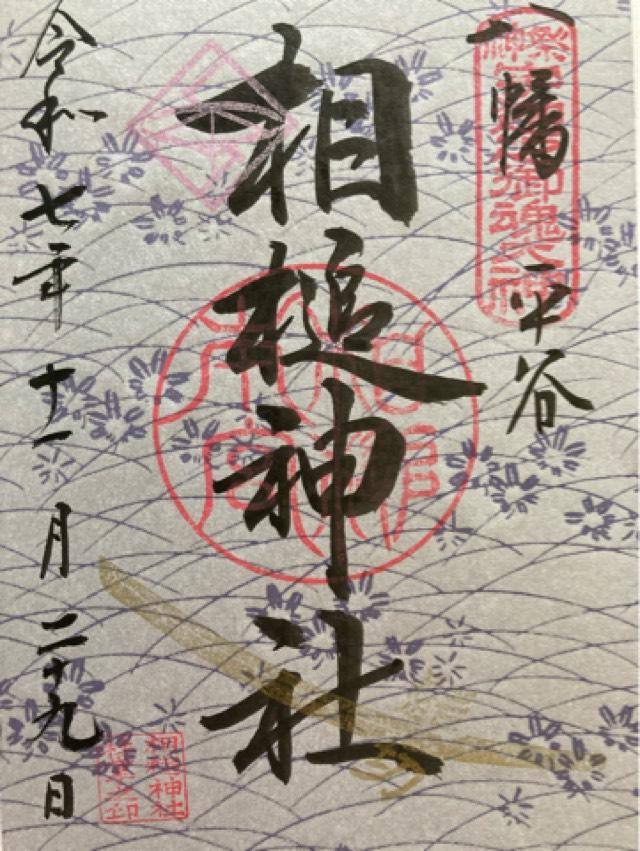 八幡平谷
相槌神社
令和七年十一月二十九日
祭神
御魂大神
相槌神社